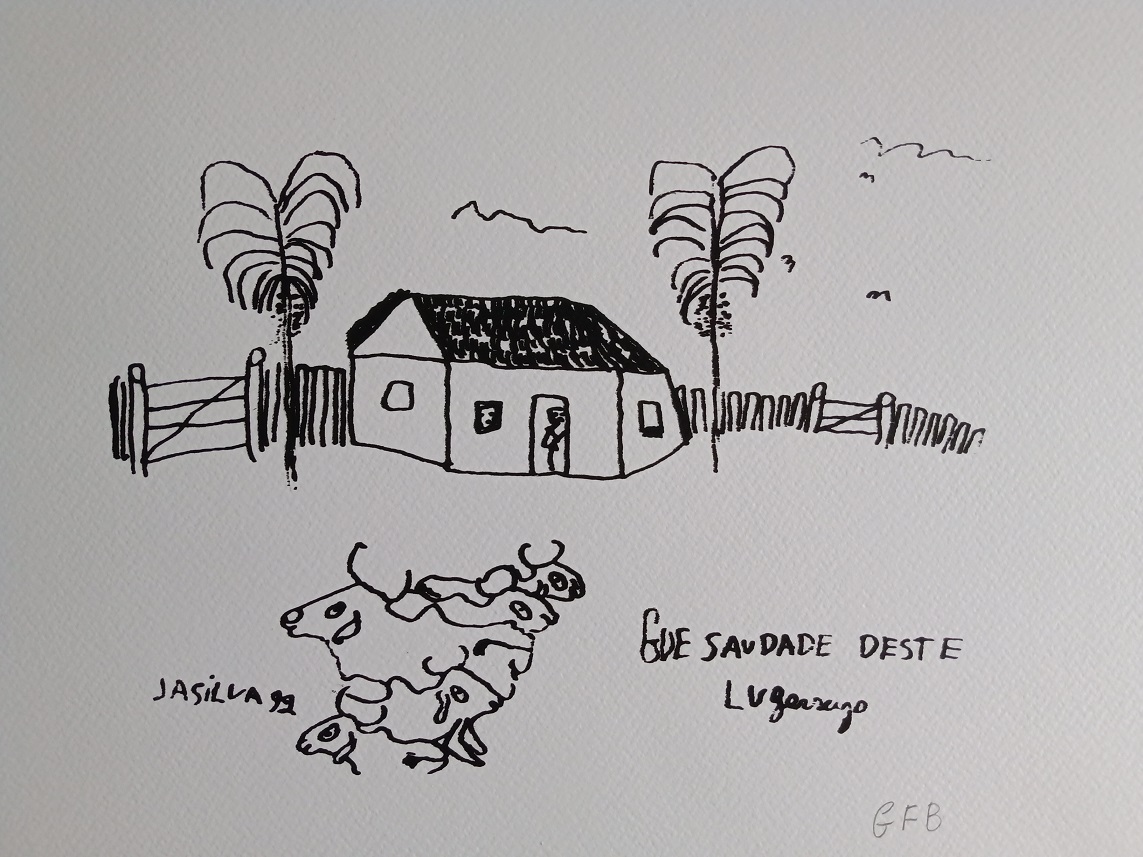 JASiLVA 92
QUE SAUDADE DESTE
LUgarzejo
GFB